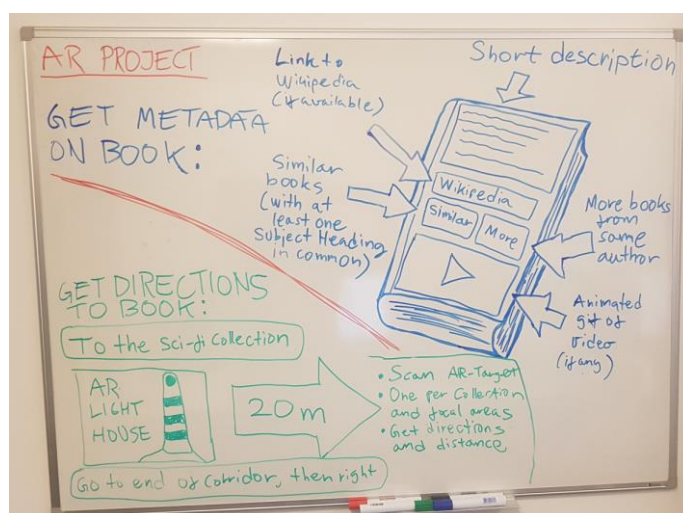 AR PROJECT
GET METADATA
ON BOOK:
Link to
Wikipedia
(if available)
Short description
Similar
books
(with at
least one
Subject Heading
in common)
Wikipedia
Similar
More
More books
from
same
author
Animated
gif of
video
(if any)
GET DIRECTIONS
TO BOOK:
To the Sci-fi Collection
AR
LIGHT
HOUSE
20m
• Scan AR-Target
• One per Collection
and focal areas
• Get directions
and distance
Go to end of corridor, then right